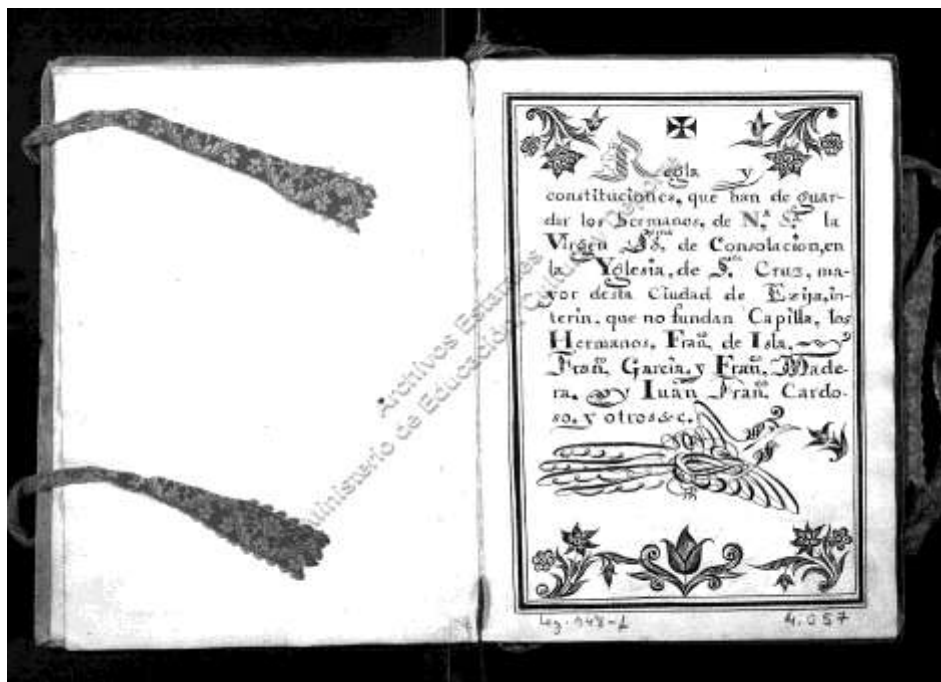 Regla y
constituciones, que han de guar-
dar los hermanos, de N.ª S.ª la
Virgen de Consolacion, en
la Yglesia, de S.ta Cruz, ma-
yor desta Ciudad de Ezija, in-
terin, que no fundan Capilla, los
Hermanos, Fran.co de Isla,
Fran.co Garcia, y Fran.co Made-
ra, y Iuan Fran.co Cardo-
so, y otros &c.
4.057
Archivos Estatales
Ministerio de Educación, Cultura y Deporte